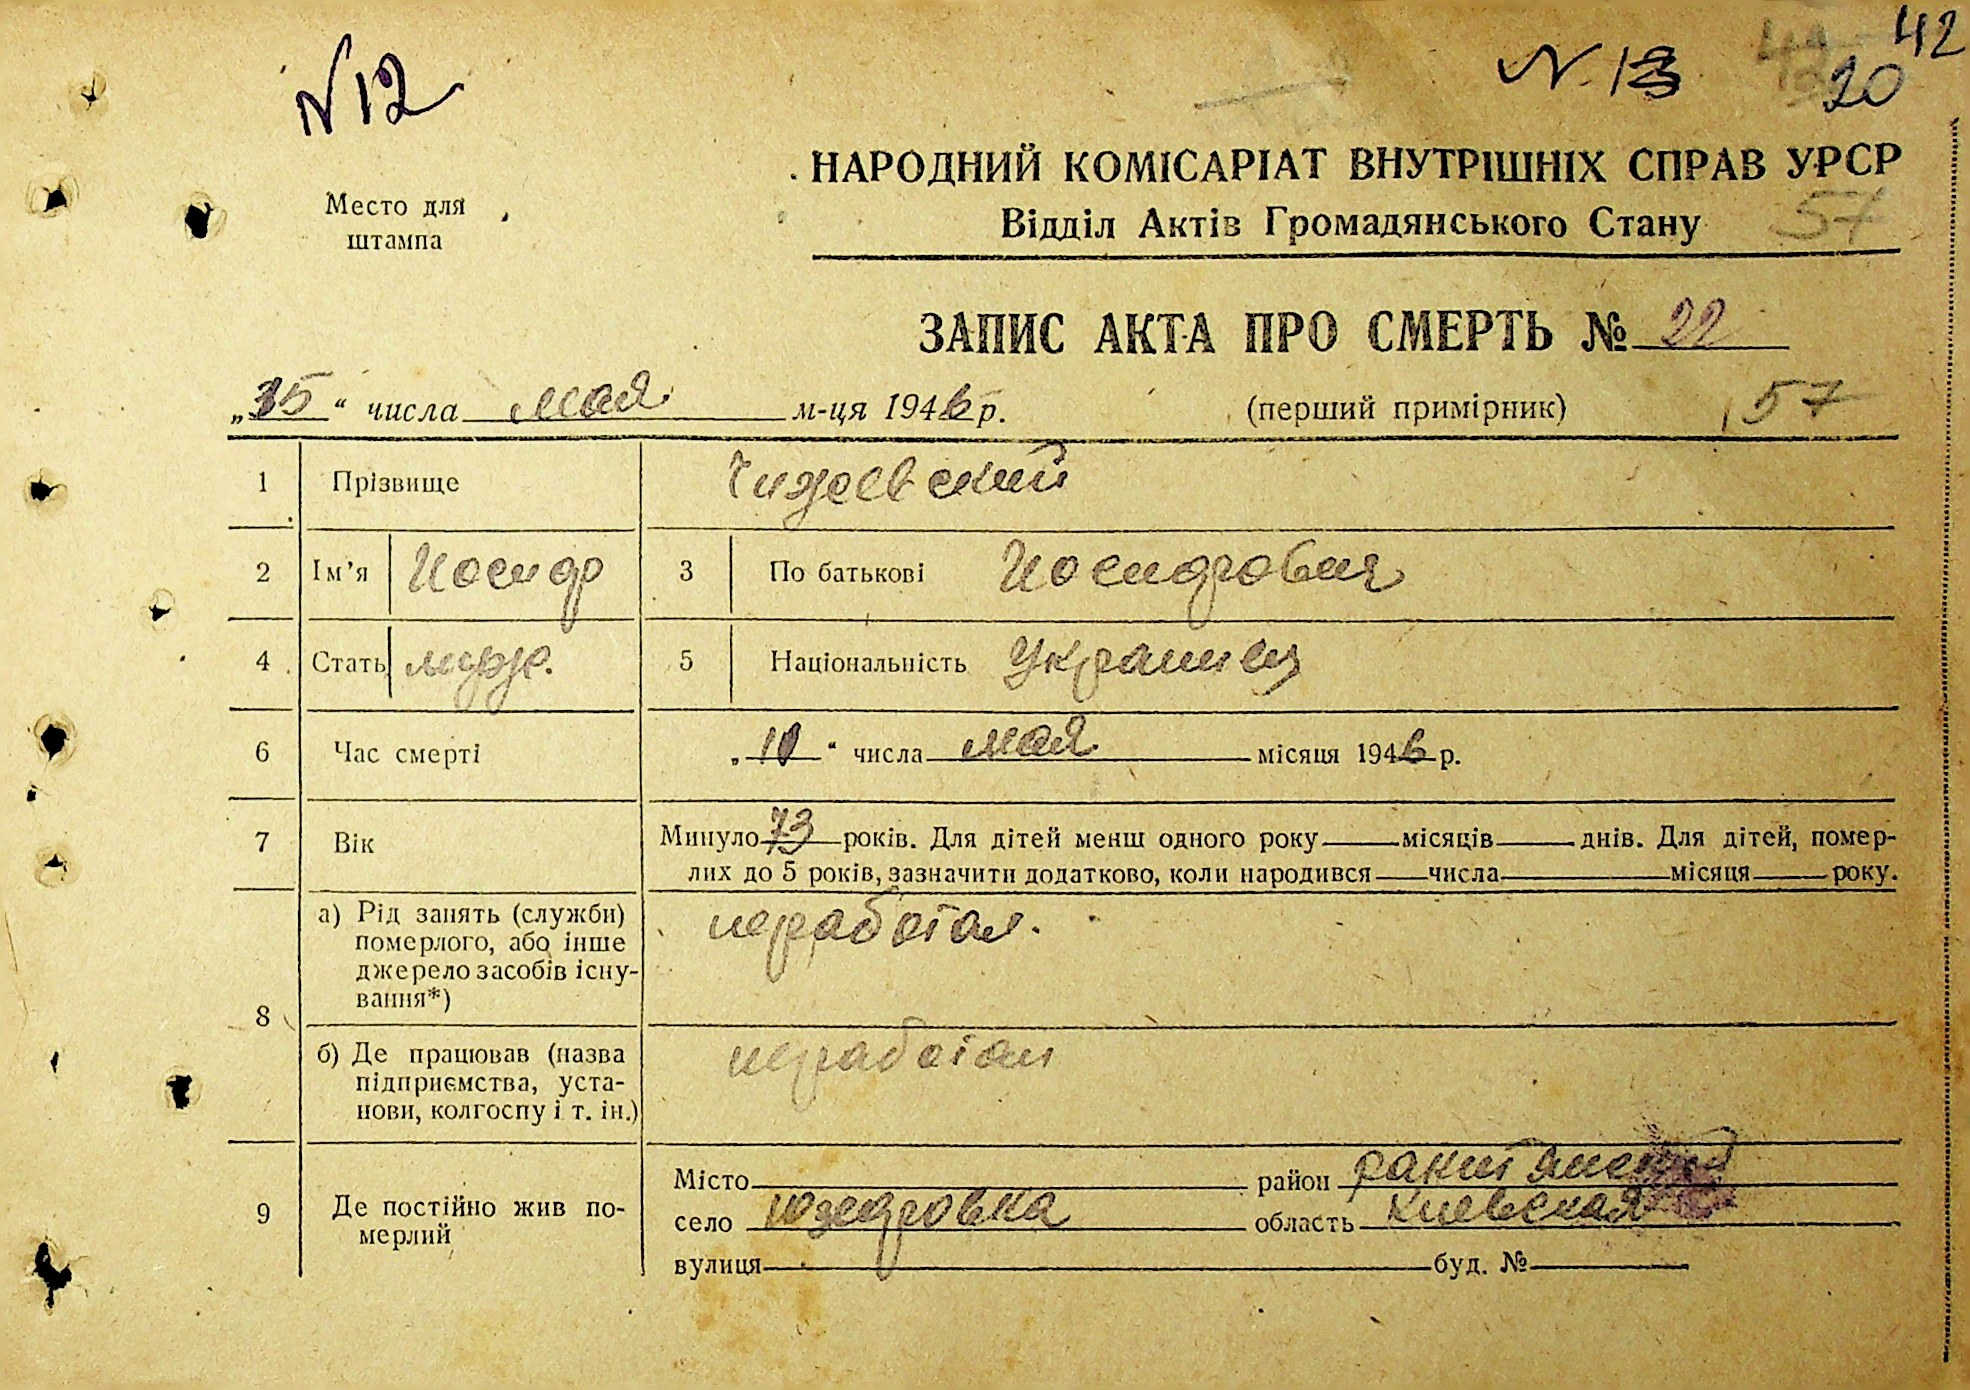 N 12
N. 13
42
20
Место для
штампа
НАРОДНИЙ КОМІСАРІАТ ВНУТРІШНІХ СПРАВ УРСР
Відділ Актів Громадянського Стану
57
ЗАПИС АКТА ПРО СМЕРТЬ № 22
„15“ числа мая м-ця 1946 р. (перший примірник) 57
1 Прізвище Чижевский
2 Ім'я Иосиф 3 По батькові Иосифович
4 Стать муж. 5 Національність Украинец
6 Час смерті „10“ числа мая місяця 1946 р.
7 Вік Минуло 73 років. Для дітей менш одного року місяців днів. Для дітей, помер-
лих до 5 років, зазначити додатково, коли народився числа місяця року.
8 а) Рід занять (служби)
померлого, або інше
джерело засобів існу-
вання*)
неработал.
б) Де працював (назва
підприємства, уста-
нови, колгоспу і т. ін.)
неработал
9 Де постійно жив по-
мерлий
Місто район ракитянский
село Юзефовка область Киевская
вулиця буд. №